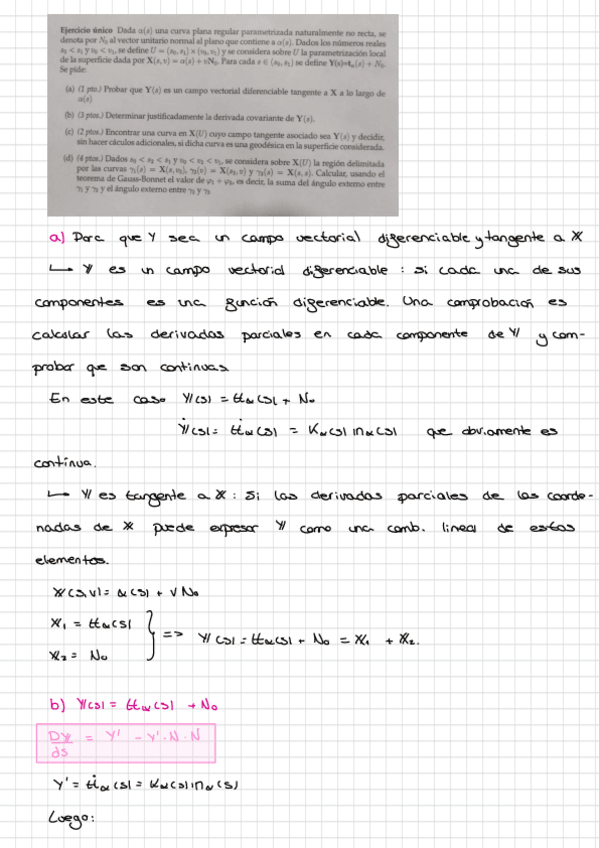 Ejercicio único Dada α(s) una curva plana regular parametrizada naturalmente no recta, se
denota por N₀ al vector unitario normal al plano que contiene a α(s). Dados los números reales
s₀ < s₁ y v₀ < v₁, se define U = (s₀, s₁) × (v₀, v₁) y se considera sobre U la parametrización local
de la superficie dada por X(s, v) = α(s) + vN₀. Para cada s ∈ (s₀, s₁) se define Y(s)=tα(s) + N₀.
Se pide:
(a) (1 pto.) Probar que Y(s) es un campo vectorial diferenciable tangente a X a lo largo de
α(s)
(b) (3 ptos.) Determinar justificadamente la derivada covariante de Y(s).
(c) (2 ptos.) Encontrar una curva en X(U) cuyo campo tangente asociado sea Y(s) y decidir,
sin hacer cáculos adicionales, si dicha curva es una geodésica en la superficie considerada.
(d) (4 ptos.) Dados s₀ < s₂ < s₁ y v₀ < v₂ < v₁, se considera sobre X(U) la región delimitada
por las curvas γ₁(s) = X(s, v₂), γ₂(v) = X(s₂, v) y γ₃(s) = X(s, s). Calcular, usando el
teorema de Gauss-Bonnet el valor de φ₁ + φ₂, es decir, la suma del ángulo externo entre
y el ángulo externo entre
a) Para que Y sea un campo vectorial diferenciable y tangente a X
↳ Y es un campo vectorial diferenciable : si cada una de sus
componentes es una función diferenciable. Una comprobación es
calcular las derivadas parciales en cada componente de Y y com-
probar que son continuas
En este caso Y(s) = tα(s) + N₀
Ẏ(s) = ṫα(s) = Kα(s) nα(s) que obviamente es
continua.
↳ Y es tangente a X : Si las derivadas parciales de las coorde-
nadas de X puede expresar Y como una comb. lineal de estos
elementos.
X(s,v) = α(s) + v N₀
X₁ = tα(s)
X₂ = N₀
=> Y(s) = tα(s) + N₀ = X₁ + X₂.
b) Y(s) = tα(s) + N₀
DY/ds = Y' - Y'·N·N
Y' = ṫα(s) = Kα(s) nα(s)
Luego: